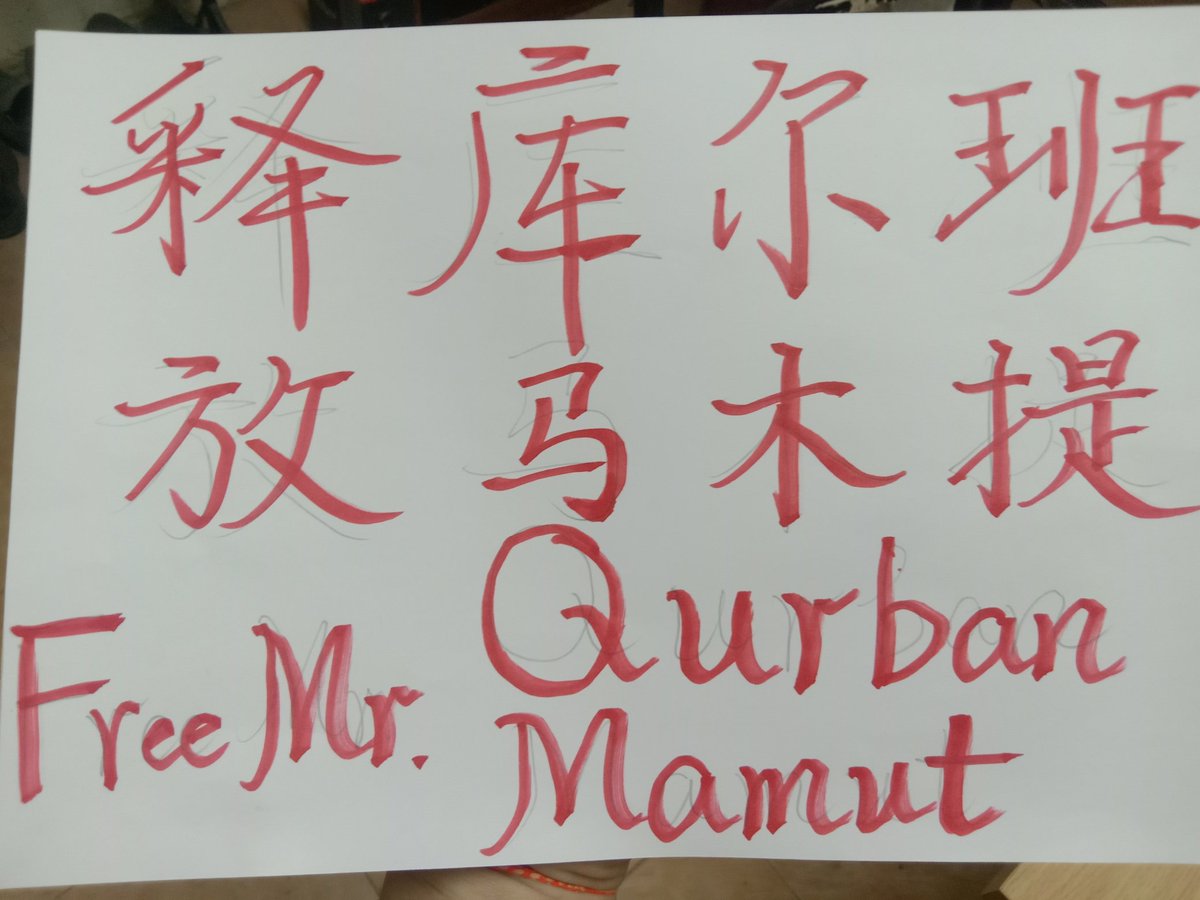 释 库尔班
放 马木提
Free Mr. Qurban
Mamut